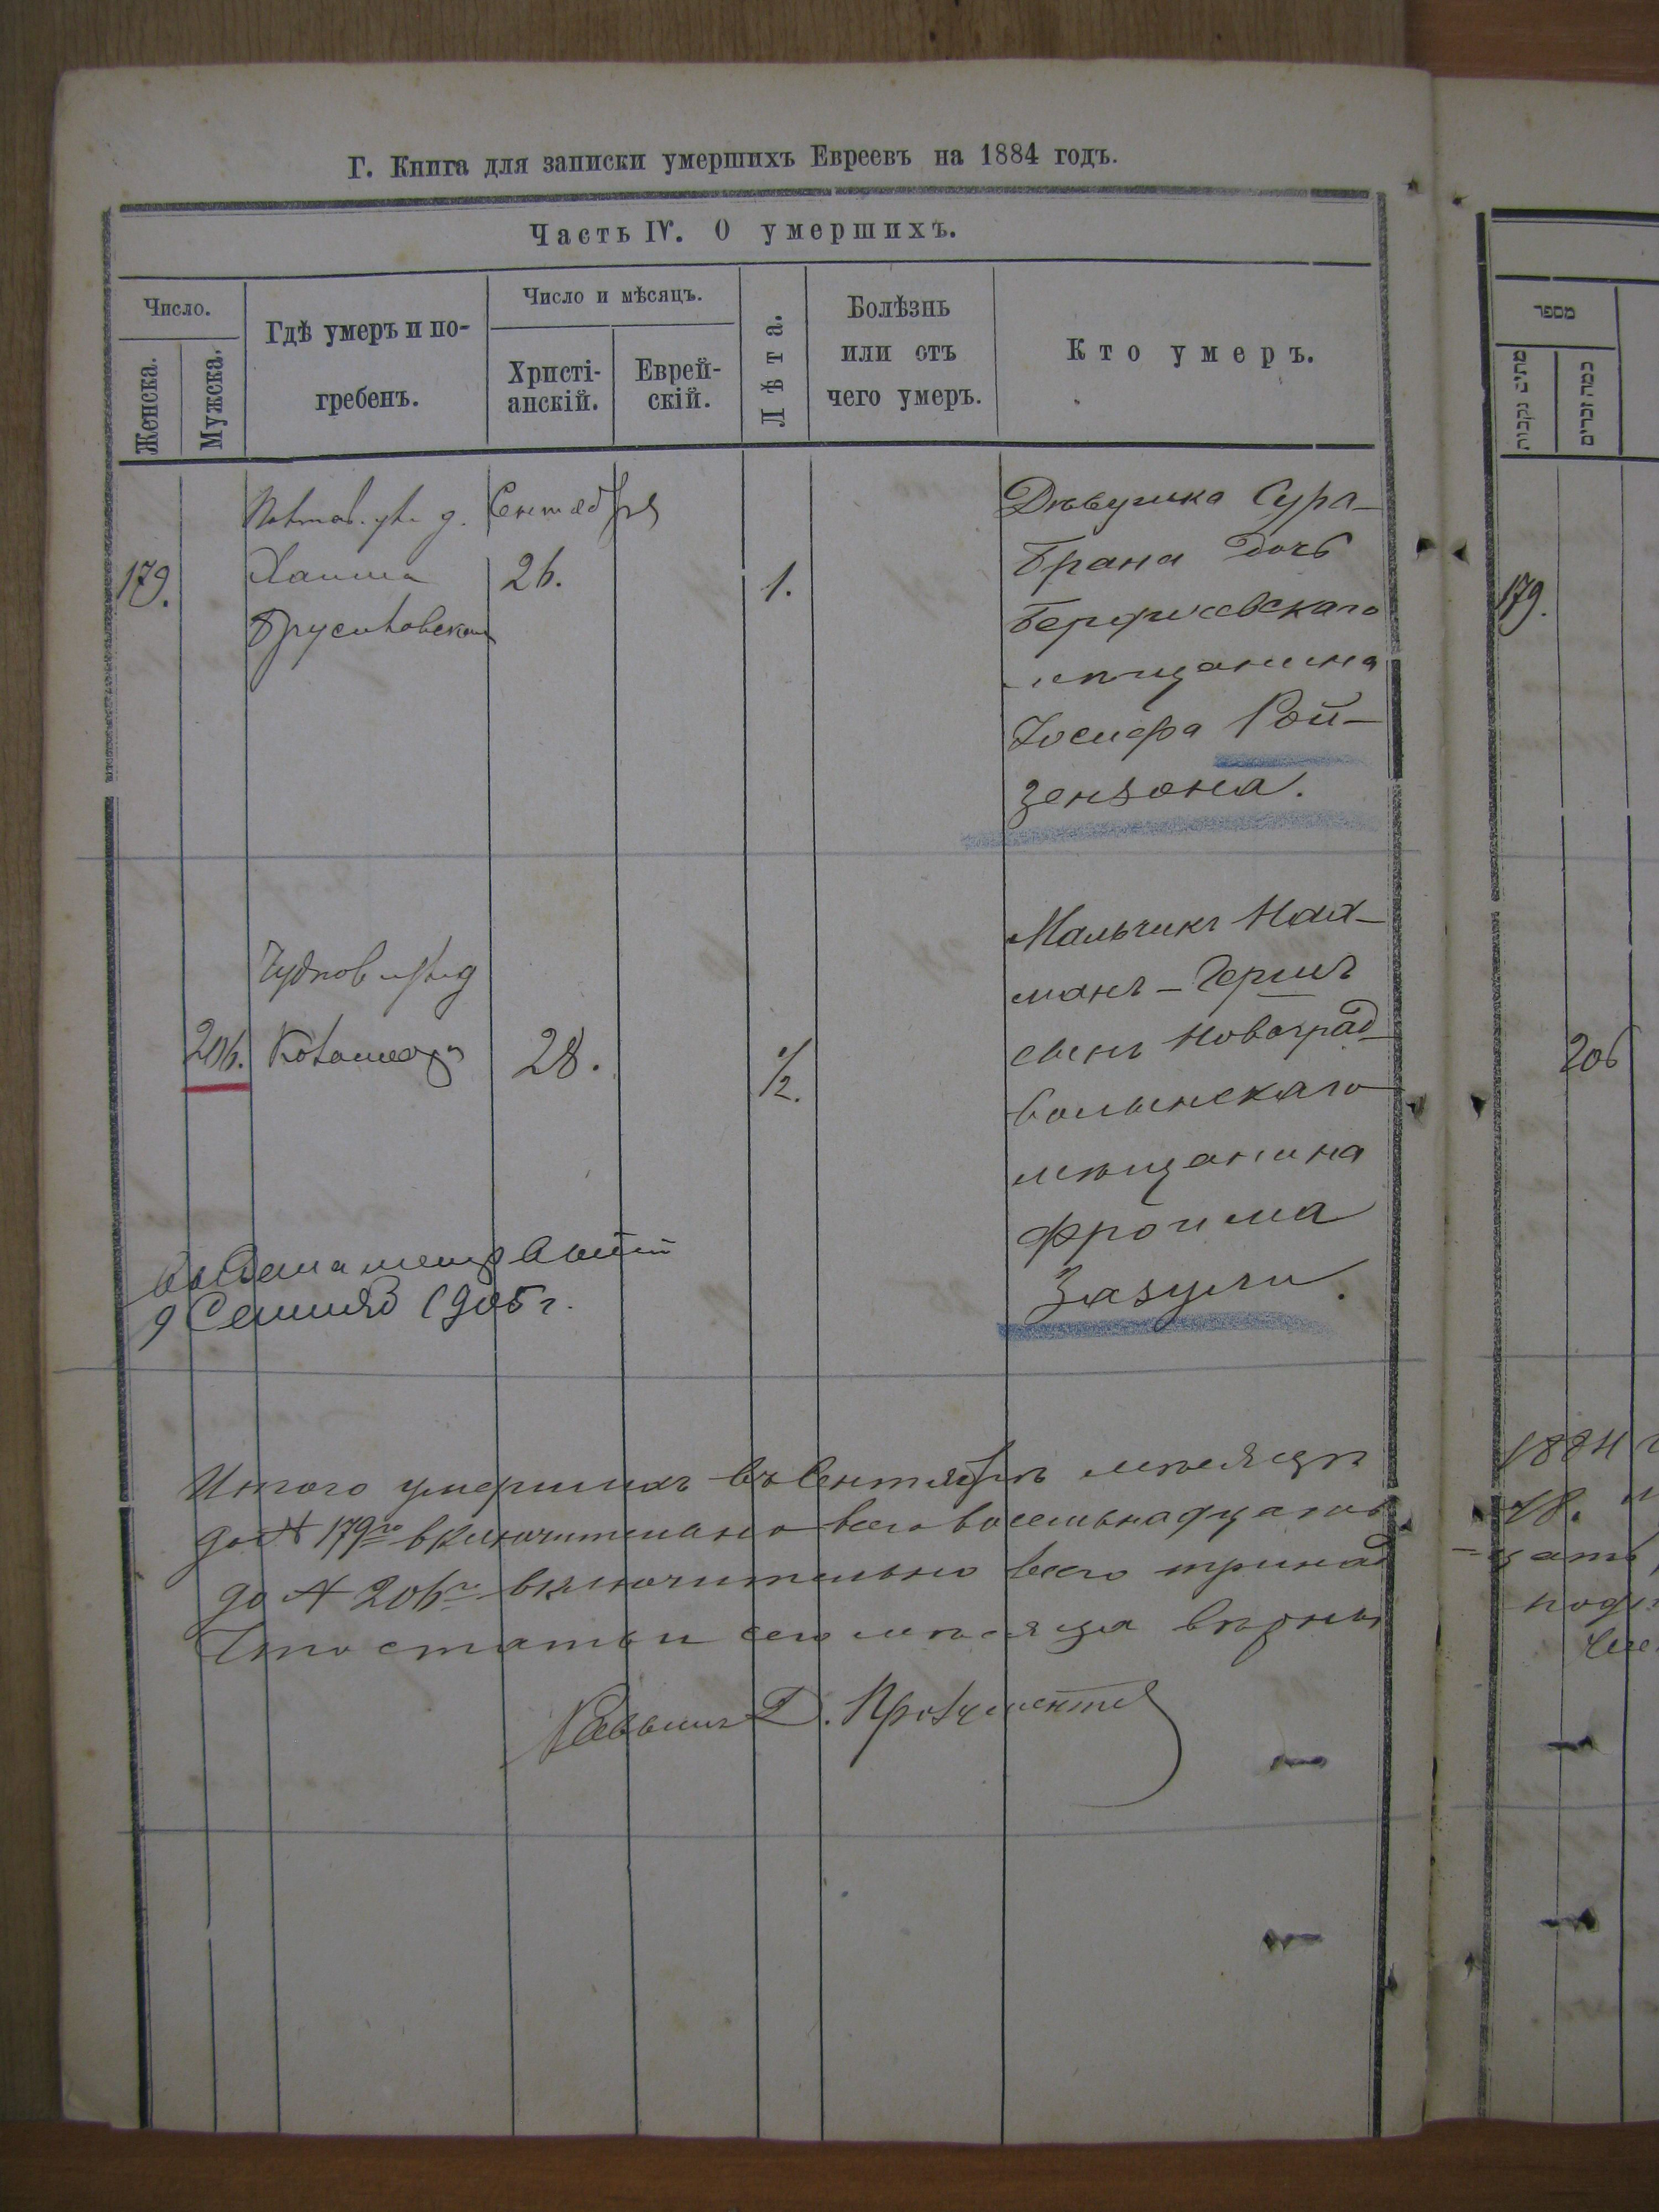 Г. Книга для записки умершихъ Евреевъ на 1884 годъ.
Часть IV. О умершихъ.
Число.
Женска.
Мужска.
Гдѣ умеръ и по-
гребенъ.
Число и мѣсяцъ.
Христі-
анскій.
Еврей-
скій.
Лѣта.
Болѣзнь
или отъ
чего умеръ.
Кто умеръ.
179.
д.
Сентября
26.
1.
Дѣвушка Сура-
Брана дочь
Бердичевскаго
мѣщанина
Іосифа Рой-
зензона.
206.
28.
1/2.
Мальчикъ Нах-
манъ-Гершъ
сынъ Новоград-
волынскаго
мѣщанина
Фроима
Зазули.
9 1905 г.
Итого умершихъ въ Сентябрѣ мѣсяцѣ
до № 179го включительно всего восемьнадцать
до № 206го включительно всего тринад
Что статьи сего мѣсяца вѣрны
Раввинъ
מספר
מתים נקבות
כמה זכרים
179.
206
1884
18.